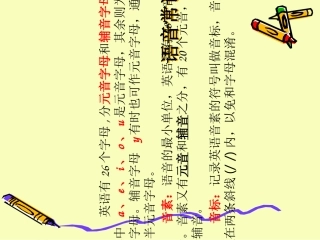 语音常
英语有 26 个字母，分元音字母和辅音字母
中 a、e、i、o、u 是元音字母，其余则为
字母。辅音字母 y 有时也可作元音字母，通
半元音字母。
音素：语音的最小单位，英语
。音素又有元音和辅音之分，有 20 个元音，
辅音。
音标：记录英语音素的符号叫做音标，音
在两条斜线( / / )内，以免和字母混淆。